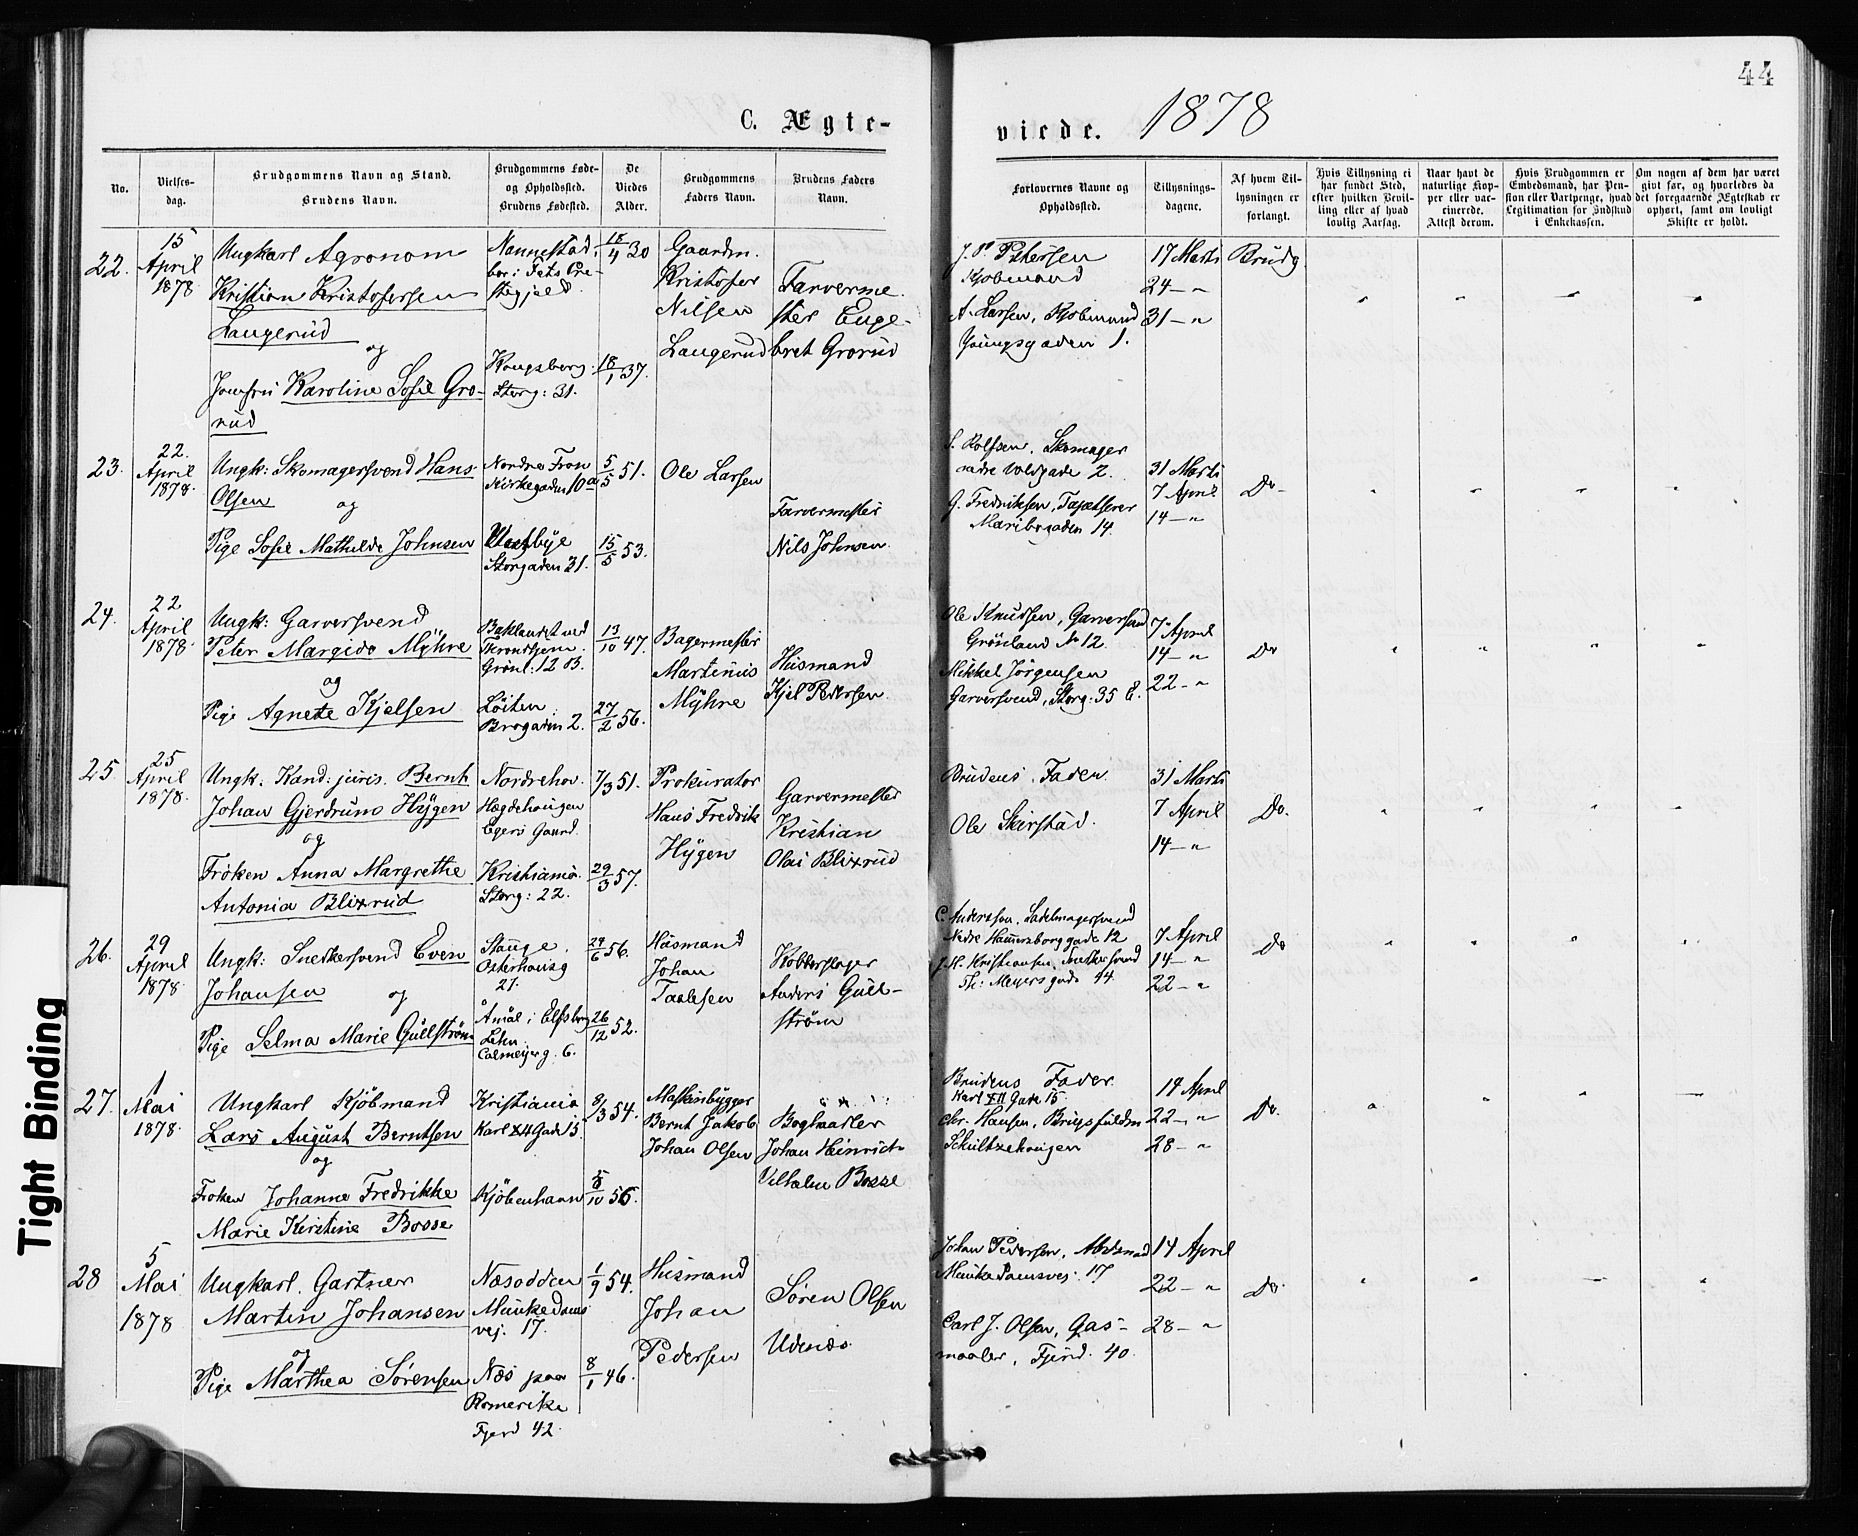 44
C. Ægte-
viede. 1878
No.
Vielses-
dag.
Brudgommens Navn og Stand.
Brudens Navn.
Brudgommens Føde-
og Opholdssted.
Brudens Fødested.
De
Viedes
Alder.
Brudgommens
Faders Navn.
Brudens Faders
Navn.
Forlovernes Navne og
Opholdssted.
Tillysnings-
dagene.
Af hvem Til-
lysningen er
forlangt.
Hvis Tillysning ei
har fundet Sted,
efter hvilken Bevil-
ling eller af hvad
lovlig Aarsag.
Naar havt de
naturlige Kop-
per eller vac-
cinerede.
Attest derom.
Hvis Brudgommen er
Embedsmand, har Pen-
sion eller Vartpenge, hvad
Legitimation for Indskud
i Enkekassen.
Om nogen af dem har været
givt før, og hvorledes da
det foregaaende Ægteskab er
ophørt, samt om lovligt
Skifte er holdt.
22.
15
April
1878
Ungkarl Agronom
Kristian Kristofersen
Laugerud
og
Jomfru Karoline Sofie Gro-
rud
Nannestad,
bor i Fets Præ-
stegjeld
Kongsberg.
Storg: 31.
18/4 30
18/1 37.
Gaardm.
Kristofer
Nilsen
Laugerud
Farverme-
ster Enge-
bret Grorud
J. P. Petersen
Kjobmand
A. Larsen, Kjobmand
Youngsgaden 1.
17 Marts
24 — "
31 — "
Brudg
23.
22.
April
1878.
Ungk: Skomagersvend Hans
Olsen
og
Pige Sofie Mathilde Johnsen
Nordre Fron
Kirkegaden 10 a
Vestbye
Storgaden 31.
5/5 51.
15/5 53.
Ole Larsen
Farvermester
Nils Johnsen.
S. Rolfsen, Skomager
nedre Voldgade 2.
G. Fredriksen, Tapetserer
Maribogaden 14.
31 Marts
7 April
14 — "
Do
24.
22
April
1878.
Ungk: Garversvend
Peter Margido Myhre
og
Pige Agnete Kjelsen
Baklandet ved
Throndhjem.
Grønl. 12 B.
Løiten
Brogaden 2.
13/10 47.
27/2 56.
Bagermester
Martinus
Myhre
Husmand
Kjel Pedersen
Ole Knudsen, Garversvend
Grønland No 12.
Mikkel Jørgensen
Garversvend, Storg: 35 E.
7 April
14 — "
22 — "
Do
25.
25
April
1878.
Ungk. Kand: juris. Bernt
Johan Gjerdrum Hygen
og
Frøken Anna Margrethe
Antonia Blixrud
Nordrehov.
Hægdehaugen
Egers Gaard.
Kristiania.
Storg: 22.
7/3 51.
29/3 57.
Prokurator
Hans Fredrik
Hygen
Garvermester
Kristian
Olai Blixrud
Brudens Fader
Ole Skirstad.
31 Marts
7 April
14 — "
Do.
26.
29
April
1878
Ungk: Snekersvend Even
Johansen
og
Pige Selma Marie Gullstrøm
Stange.
Osterhausg
21.
Åmål i Elfsborg
Lehn.
Calmeyerg. 6.
29/6 56.
26/12 52.
Husmand
Johan
Taalesen
Kobberslager
Anders Gull-
strøm
C. Andersson. Sadelmagersvend
Nedre Hammersborggade 12
J. H. Kristiansen, Snekersvend
Th: Meyersgade 44.
7 April
14 — "
22 — "
Do
27.
1
Mai
1878.
Ungkarl Kjøbmand
Lars August Berntsen
og
Frøken Johanne Fredrikke
Marie Kirstine Bosse
Kristiania
Karl XII Gade 15.
Kjøbenhavn
8/3 54.
Maskinbygger
Bernt Jakob
Johan Olsen
Boghandler
Johan Heinrich
Vilhelm Bosse
Brudens Fader.
Karl XII Gade 15.
Chr. Hansen, Brugsfuldm
Schultzehaugen
14 April
22 — "
28 — "
Do.
28
5
Mai
1878
Ungkarl. Gartner
Martin Johansen
og
Pige Marthea Sørensen
Næsodden
Munkedams
vej. 17.
Næs paa
Romerike
Fjerd 42.
1/9 54.
8/1 46.
Husmand
Johan
Pedersen
Søren Olsen
Udenæs.
Johan Pedersen,
Munkedamsvej. 17
Carl J. Olsen, Gas-
maaler, Fjerd. 40.
14 April
22 — "
28 — "
Do.
Tight Binding